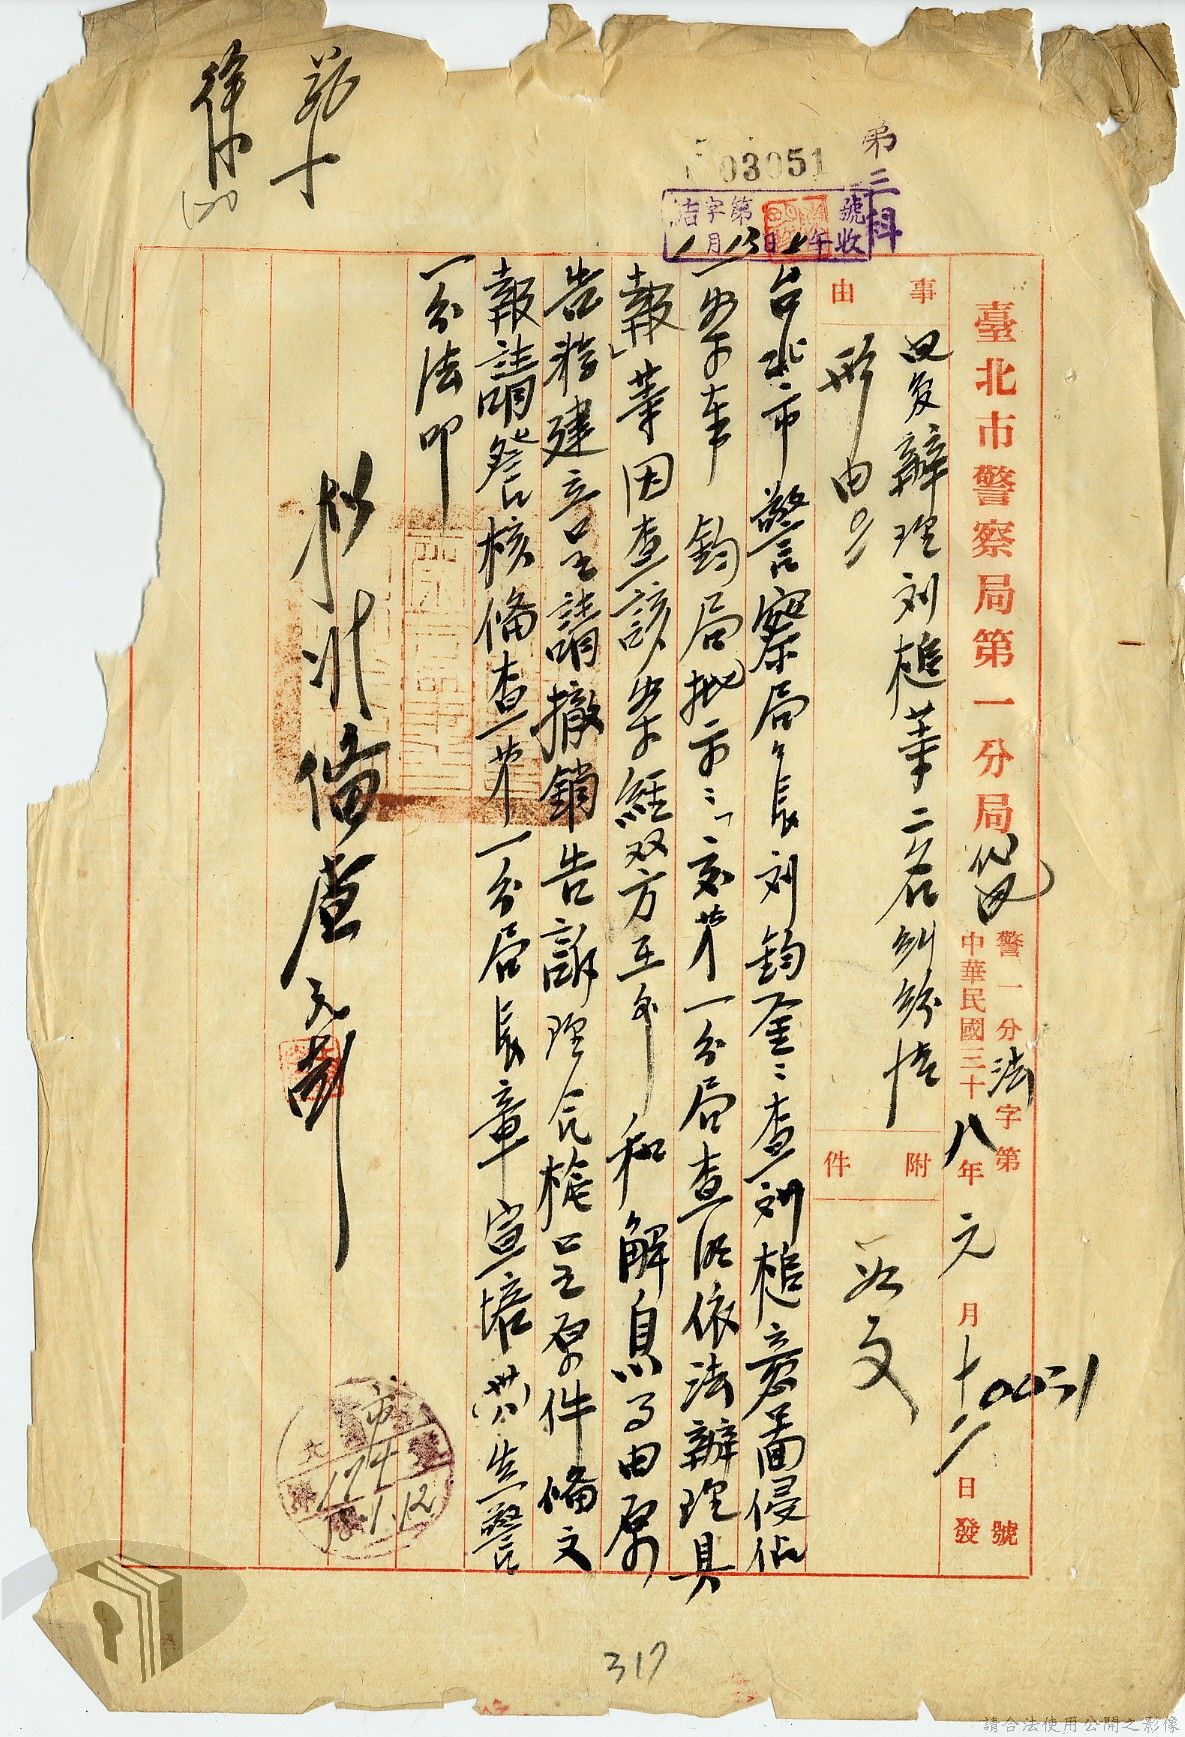 臺北市警察局第一分局代電
警一分法字第0031號
中華民國三十八年元月十二日發
事由
因复辦理刘槌華二名糾紛情
形由
附件
如文
台北市警察局局長刘鈞鑒：查刘槌意圖侵佔
一案奉 鈞局批示：「交第一分局查明依法辦理具
報」等因查該案經双方互 和解息事由原
告 建 呈請撤銷告訴理合檢呈原件備文
報請詧核備查第一分局長章宣培 先警
一分法叩
擬准備查
第二科
03051
結字第 號
月13日上午收
市
174
38.1.12
317
請合法使用公開之影像